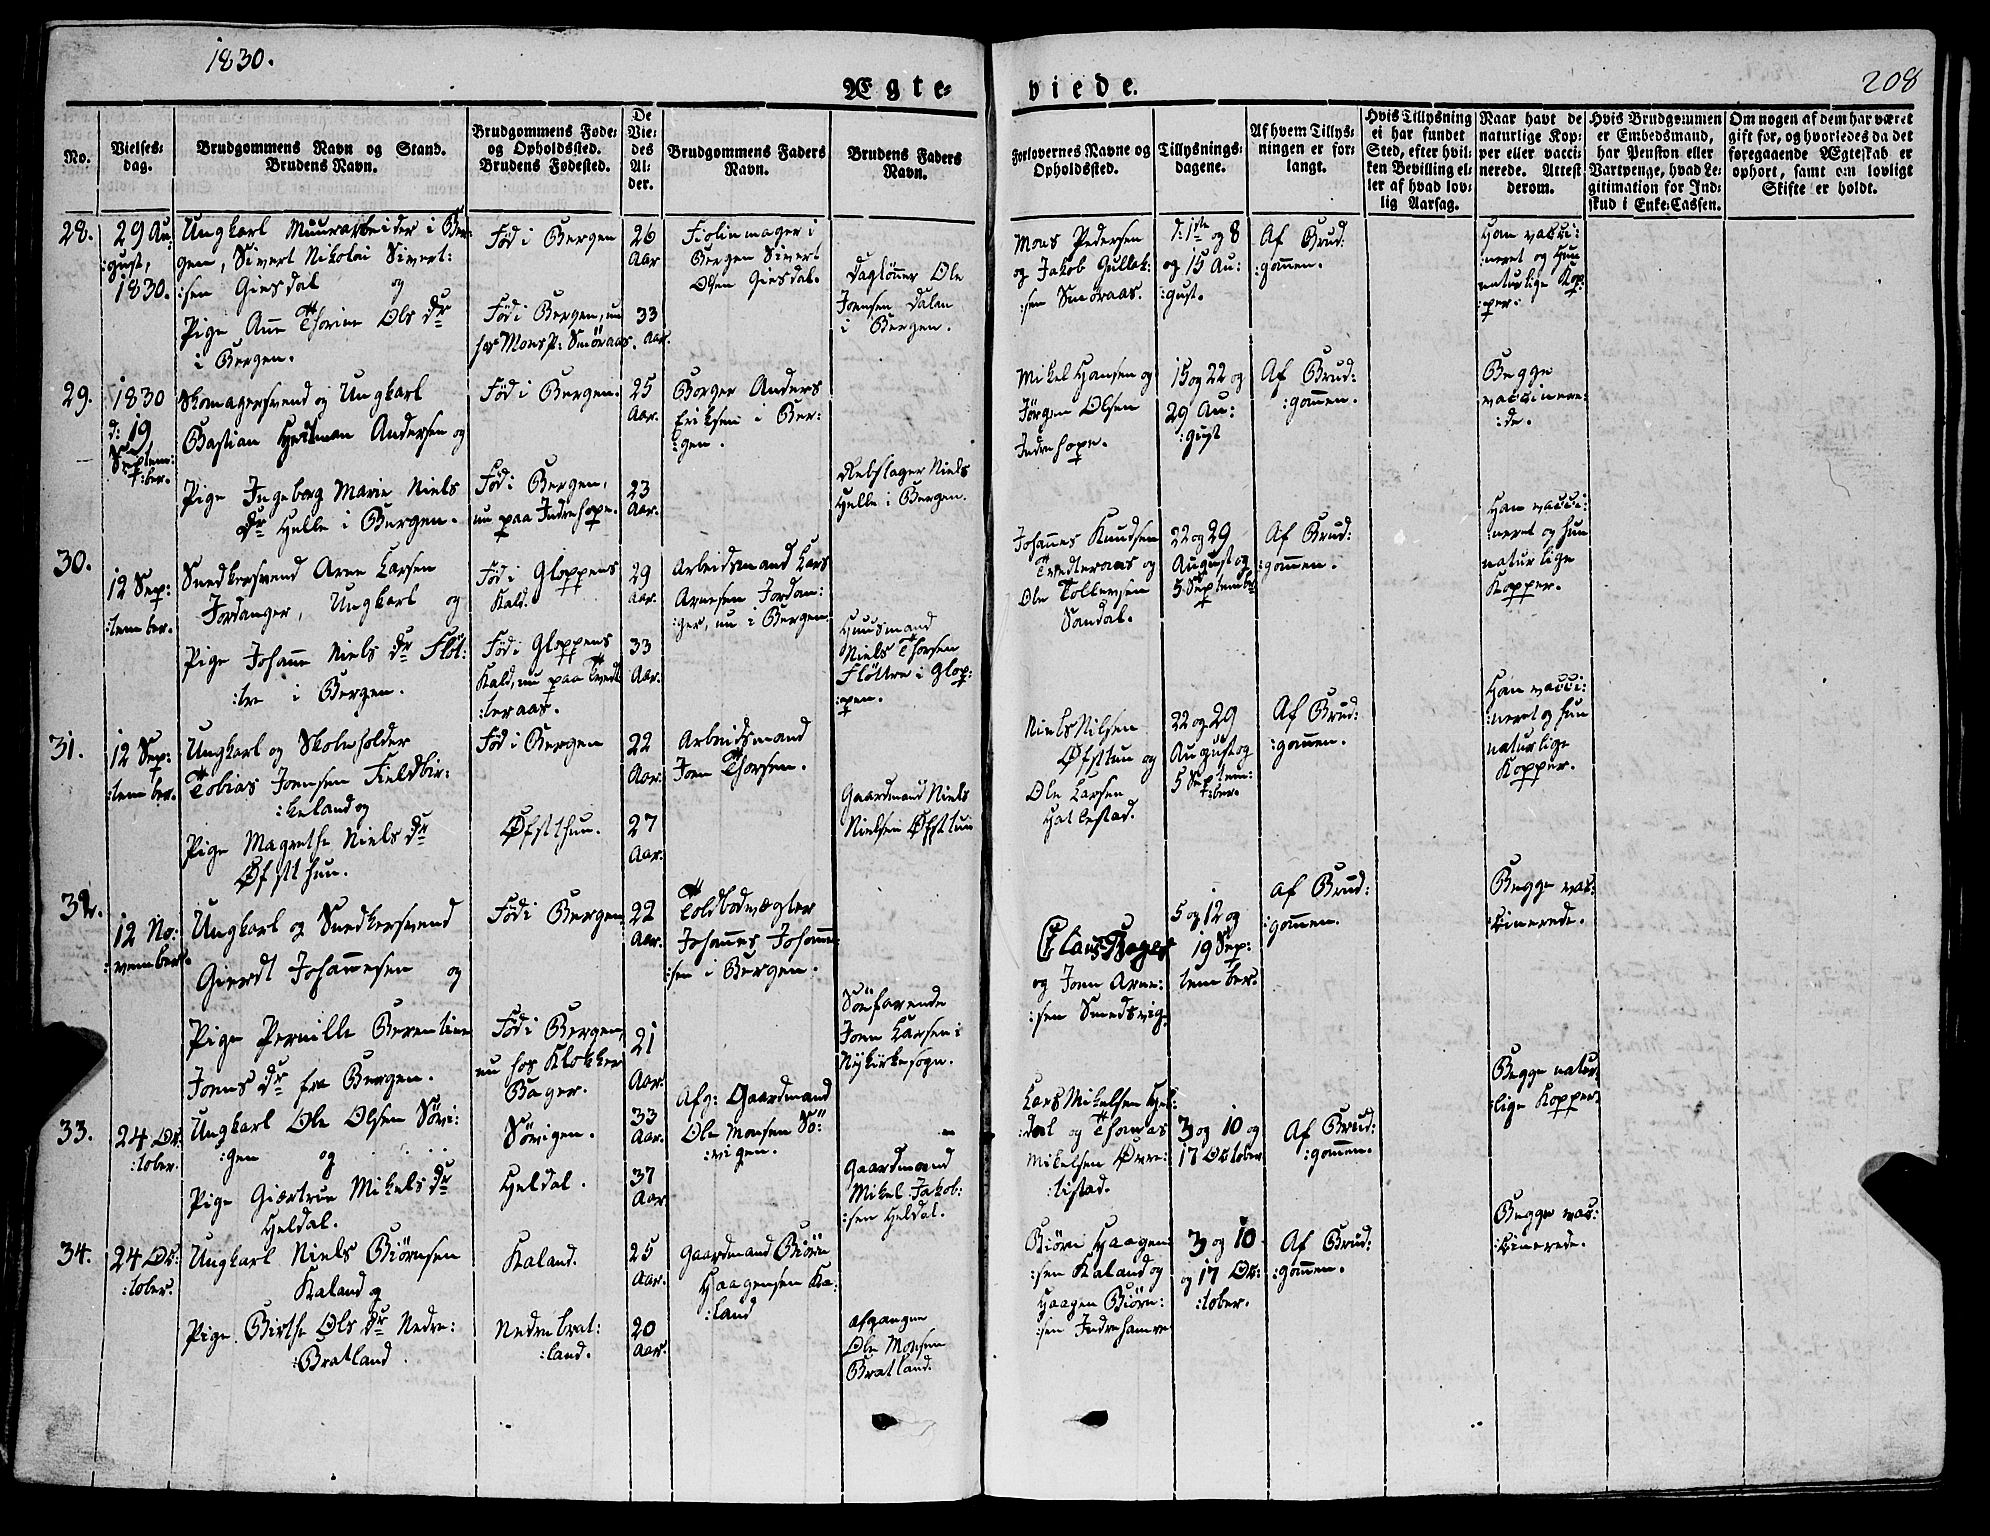 1830.
208
Ægte-
viede.
No.
Vielses-
dag.
Brudgommens Navn og Stand.
Brudens Navn.
Brudgommens Føde-
og Opholdssted.
Brudens Fødested.
De
Vie-
des
Al-
der.
Brudgommens Faders
Navn.
Brudens Faders
Navn.
Forlovernes Navne og
Opholdssted.
Tillysnings-
dagene.
Af hvem Tillys-
ningen er for-
langt.
Hvis Tillysning
ei har fundet
Sted, efter hvil-
ken Bevilling el-
ler af hvad lov-
lig Aarsag.
Naar havt de
naturlige Kop-
per eller vacci-
nerede. Attest
derom.
Hvis Brudgommen
er Embedsmand,
har Pension eller
Vartpenge, hvad Le-
gitimation for Ind-
skud i Enke-Cassen.
Om nogen af dem har været
gift før, og hvorledes da det
foregaaende Ægteskab er
ophørt, samt om lovligt
Skifte er holdt.
28.
29 Au:
:gust,
1830.
Ungkarl Muurarbeider i Ber:
gen, Sivert Nikolai Sivert:
:sen Giesdal og
Pige Ane Thorine Ols Dr
i Bergen.
Fød i Bergen
Fød i Bergen, nu
hos Mons P: Smøraas.
26
Aar
33
Aar.
Fiolinmager i
Bergen Sivert
Olsen Giesdal.
Dagløner Ole
Joensen Dalen
i Bergen.
Mons Pedersen
og Jakob Gullak:
:sen Smøraas.
d: 1ste og 8
og 15 Au:
:gust.
Af Brud:
:gommen.
Han vacci:
:neret og Hun
naturlige Kop:
:per.
29.
1830
d: 19
Septem:
:ber.
Skomagersvend og Ungkarl
Bastian Andersen og
Pige Ingeborg Marie Niels
Dr Helle i Bergen.
Fød i Bergen.
Fød i Bergen,
nu paa Indrehope.
25
Aar.
23
Aar.
Borger Anders
Eriksen i Ber:
:gen.
Rebslager Niels
Helle i Bergen.
Mikel Hansen og
Jørgen Olsen
Indrehope.
15 og 22 og
29 Au:
:gust
Af Brud:
:gommen.
Begge
vaccinere:
:de.
30.
12 Sep:
:tember.
Snedkersvend Arne Larsen
Jordanger, Ungkarl og
Pige Johanne Niels Dr Fløt:
:tre i Bergen.
Fød i Gloppens
Kald.
Fød i Gloppens
Kald, nu paa Tvedt
:teraas.
29
Aar.
33
Aar.
Arbeidsmand Lars
Arnesen Jordan:
:ger, nu i Bergen.
Huusmand
Niels Thorsen
Fløttre i Glop:
:pen.
Johannes Knudsen
Tvedteraas og
Ole Tollevsen
Sandal.
22 og 29
August og
5 Septembr
Af Brud:
:gommen.
Han vacci:
:neret og hun
naturlige
Kopper.
31.
12 Sep:
:tember.
Ungkarl og Skoleholder
Tobias Joensen Fieldbir:
:keland og
Pige Magrethe Niels Dr
Øfstthun.
Fød i Bergen
Øfstthun.
22
Aar.
27
Aar.
Arbeidsmand
Joen Thorsen.
Gaardmand Niels
Nielsen Øfsttun
Niels Nilsen
Øfsttun og
Ole Larsen
Hatlestad.
22 og 29
August og
5 Septem:
:ber.
Af Brud:
:gommen.
Han vacci:
:neret og hun
naturlige
Kopper.
32.
12 No:
:vember.
Ungkarl og Snedkersvend
Gierdt Johannesen og
Pige Pernille Berentine
Joens Dr fra Bergen.
Fød i Bergen
Fød i Bergen,
nu hos Klokker
Bager.
22
Aar.
21
Aar.
Toldbodvægter
Johannes Johanne:
:sen i Bergen.
Søefarende
Joen Larsen i
Nykirkesogn.
Claus Bager
og Joen Arne:
:sen Smedsvig.
5 og 12 og
19 Sep:
tember.
Af Brud:
:gommen.
Begge vac:
:cinerede.
33.
24 Oc:
:tober.
Ungkarl Ole Olsen Søvi:
:gen og
Pige Giertrue Mikels Dr
Heldal.
Søvigen.
Heldal.
33
Aar.
37
Aar
Afg: Gaardmand
Ole Monsen Sø:
:vigen.
Gaardmand
Mikel Jakob:
:sen Heldal.
Lars Mikelsen Hel:
:dal og Thomas
Mikelsen Øvre:
:tistad.
3 og 10 og
17 October
Af Brud:
:gommen.
Begge natur
:lige Kopper.
34.
24 Oc:
:tober.
Ungkarl Niels Biørnsen
Kaland og
Pige Birthe Ols Dr Nedre:
:Bratland.
Kaland.
Nedrebrat:
:land.
25
Aar.
20
Aar.
Gaardmand Biørn
Haagensen Ka:
:land
Afgangne
Ole Monsen
Bratland.
Biørn Haagen:
:sen Kaland og
Haagen Biørn:
:sen Indrehamre
3 og 10
og 17 Oc:
:tober.
Af Brud:
:gommen.
Begge vac:
:cinerede.